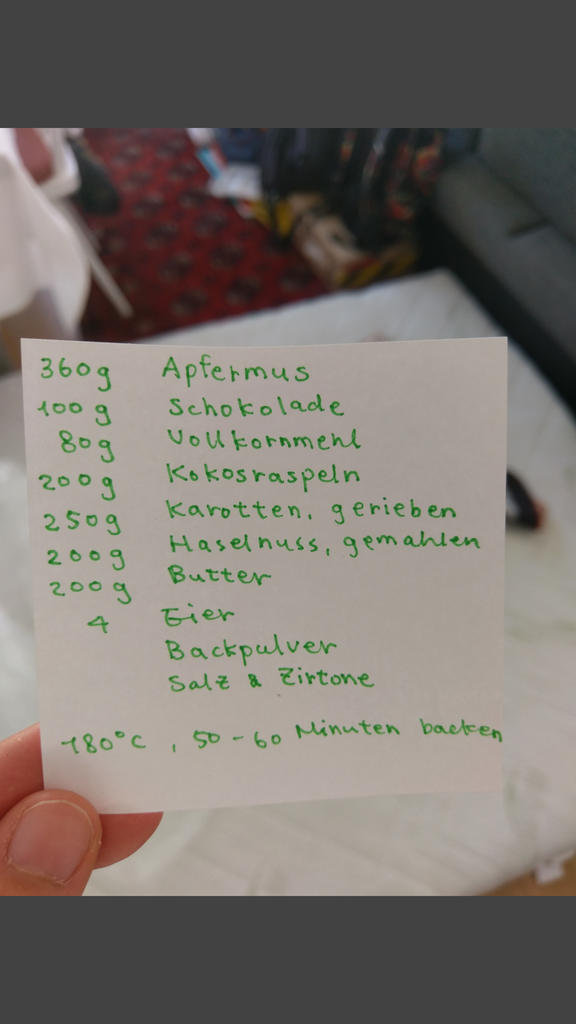 360g Apfermus
100g Schokolade
80g Vollkornmehl
200g Kokosraspeln
250g Karotten, gerieben
200g Haselnuss, gemahlen
200g Butter
4 Eier
Backpulver
Salz & Zirtone
180°C, 50-60 Minuten backen